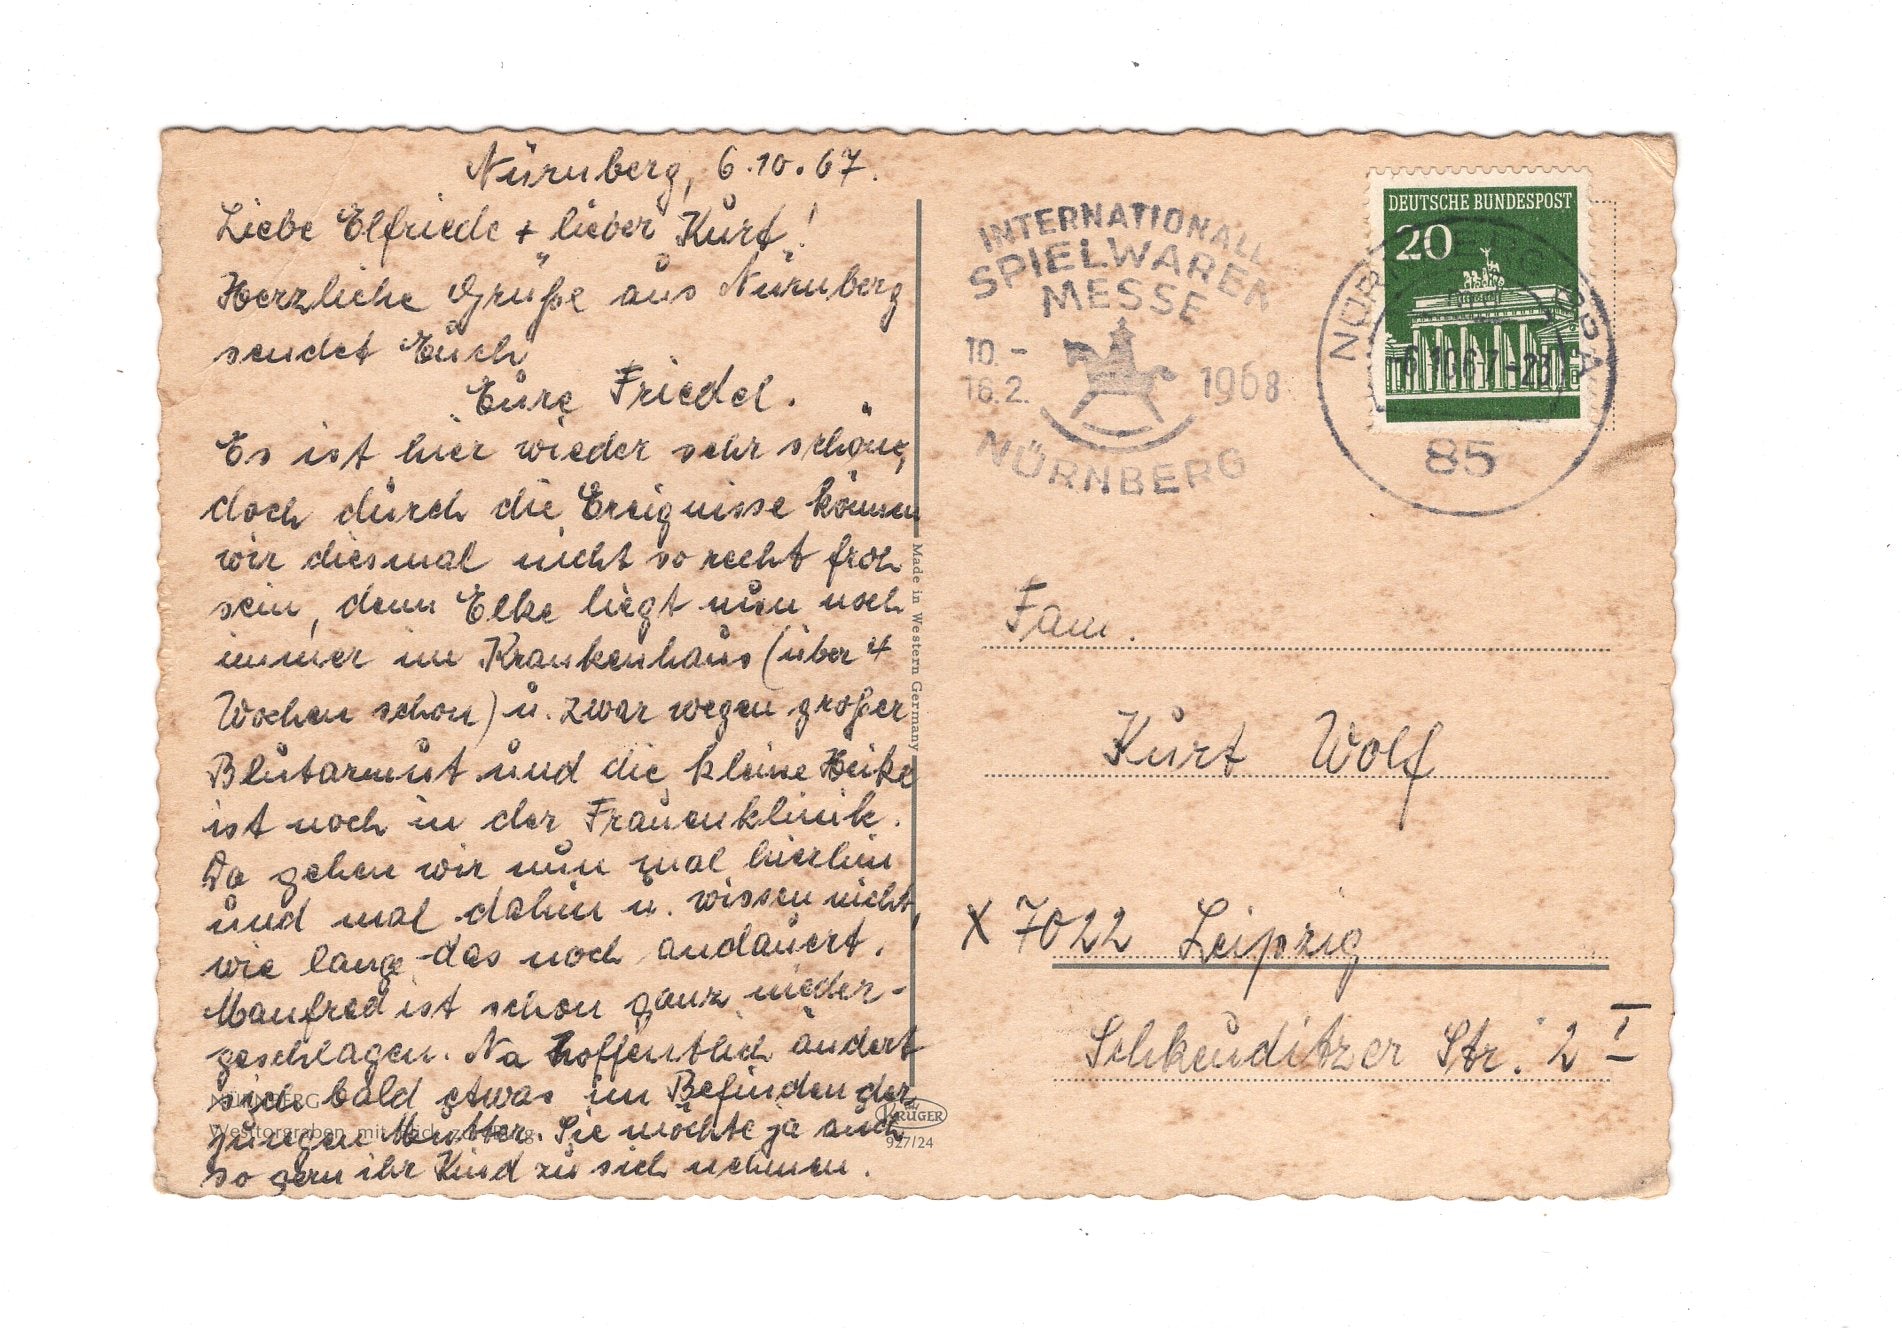 Nürnberg, 6.10.67.
Liebe Elfriede + lieber Kurt!
Herzliche Grüße aus Nürnberg
sendet Euch
Eure Friedel.
Es ist hier wieder sehr schön,
doch durch die Ereignisse können
wir diesmal nicht so recht froh
sein, denn Elke liegt nun noch
immer im Krankenhaus (über 4
Wochen schon) u. zwar wegen großer
Blutarmut und die kleine Heike
ist noch in der Frauenklinik.
Da gehen wir nun mal hierhin
und mal dahin u. wissen nicht,
wie lange das noch andauert.
Manfred ist schon ganz nieder-
geschlagen. Na hoffentlich ändert
sich bald etwas im Befinden der
jungen Mutter. Sie möchte ja auch
so gern ihr Kind zu sich nehmen.
NÜRNBERG
Westtorgraben mit Blick zur Burg
Made in Western Germany
KRÜGER
927/24
INTERNATIONALE
SPIELWAREN
MESSE
10.-
16.2. 1968
NÜRNBERG
DEUTSCHE BUNDESPOST
20
NÜRNBERG BPA
-6.10.67-23
85
Fam.
Kurt Wolf
X 7022 Leipzig
Schkeuditzer Str. 2 I